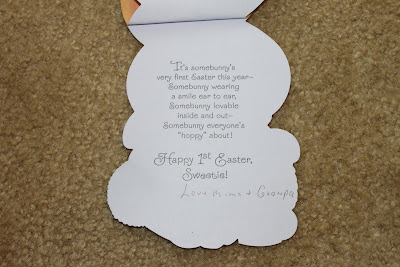 It's somebunny's
very first Easter this year–
Somebunny wearing
a smile ear to ear,
Somebunny lovable
inside and out–
Somebunny everyone's
"hoppy" about!
Happy 1st Easter,
Sweetie!
Love Mima + Grampa